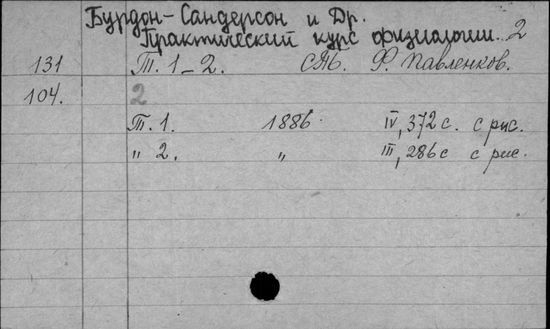 Бурдон-Сандерсон и Др.
Практический курс физиологии. 2
131 Т. 1-2. СПб. Ф. Павленков.
104. 2
Т. 1. 1886 IV, 372 с. с рис.
" 2. " III, 286 с с рис.